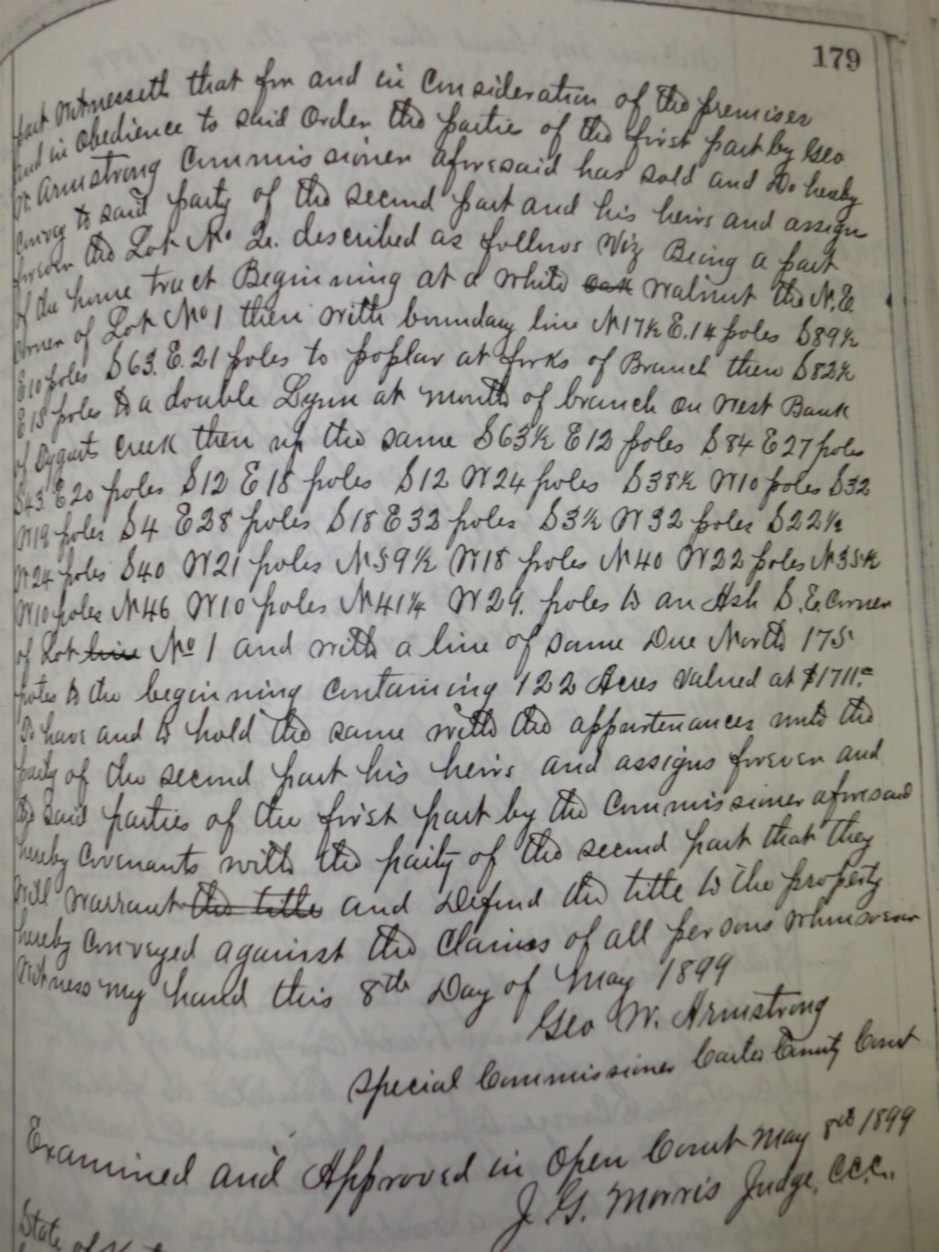 179
part Witnesseth that for and in Consideration of the premises
and in Obedience to said Order the parties of the first part by Geo
W. Armstrong Commissioner aforesaid has sold and Do hereby
Convey to said party of the second part and his heirs and assigns
forever the Lot No 2. described as follows Viz Being a part
of the home tract Beginning at a white oak walnut the N.E.
Corner of Lot No 1 then with boundary line N17½ E.14 poles S89½
E10 poles S63.E.21 poles to poplar at forks of Branch then S82½
E15 poles to a double Lynn at mouth of branch on West Bank
of Tygarts Creek then up the same S63½ E12 poles S84 E27 poles
S43 E20 poles S12 E18 poles S12 W24 poles S38½ W10 poles S32
W19 poles S4 E28 poles S18 E32 poles S3½ W32 poles S22½
W24 poles S40 W21 poles N59½ W18 poles N40 W22 poles N35½
W10 poles N46 W10 poles N41¼ W29. poles to an Ash S.E. Corner
of Lot line No 1 and with a line of same Due North 175
poles to the beginning Containing 122 Acres Valued at $1711.00
To have and to hold the same with the appurtenances unto the
party of the second part his heirs and assigns forever and
the said parties of the first part by the Commissioner aforesaid
hereby Covenants with the party of the second part that they
will warrant the title and Defend the title to the property
hereby Conveyed against the Claims of all persons whomsoever
Witness my hand this 8th Day of May 1899
Geo W. Armstrong
Special Commissioner Carter County Court
Examined and Approved in Open Court May 8th 1899
J. G. Morris Judge, C.C.C.
State of